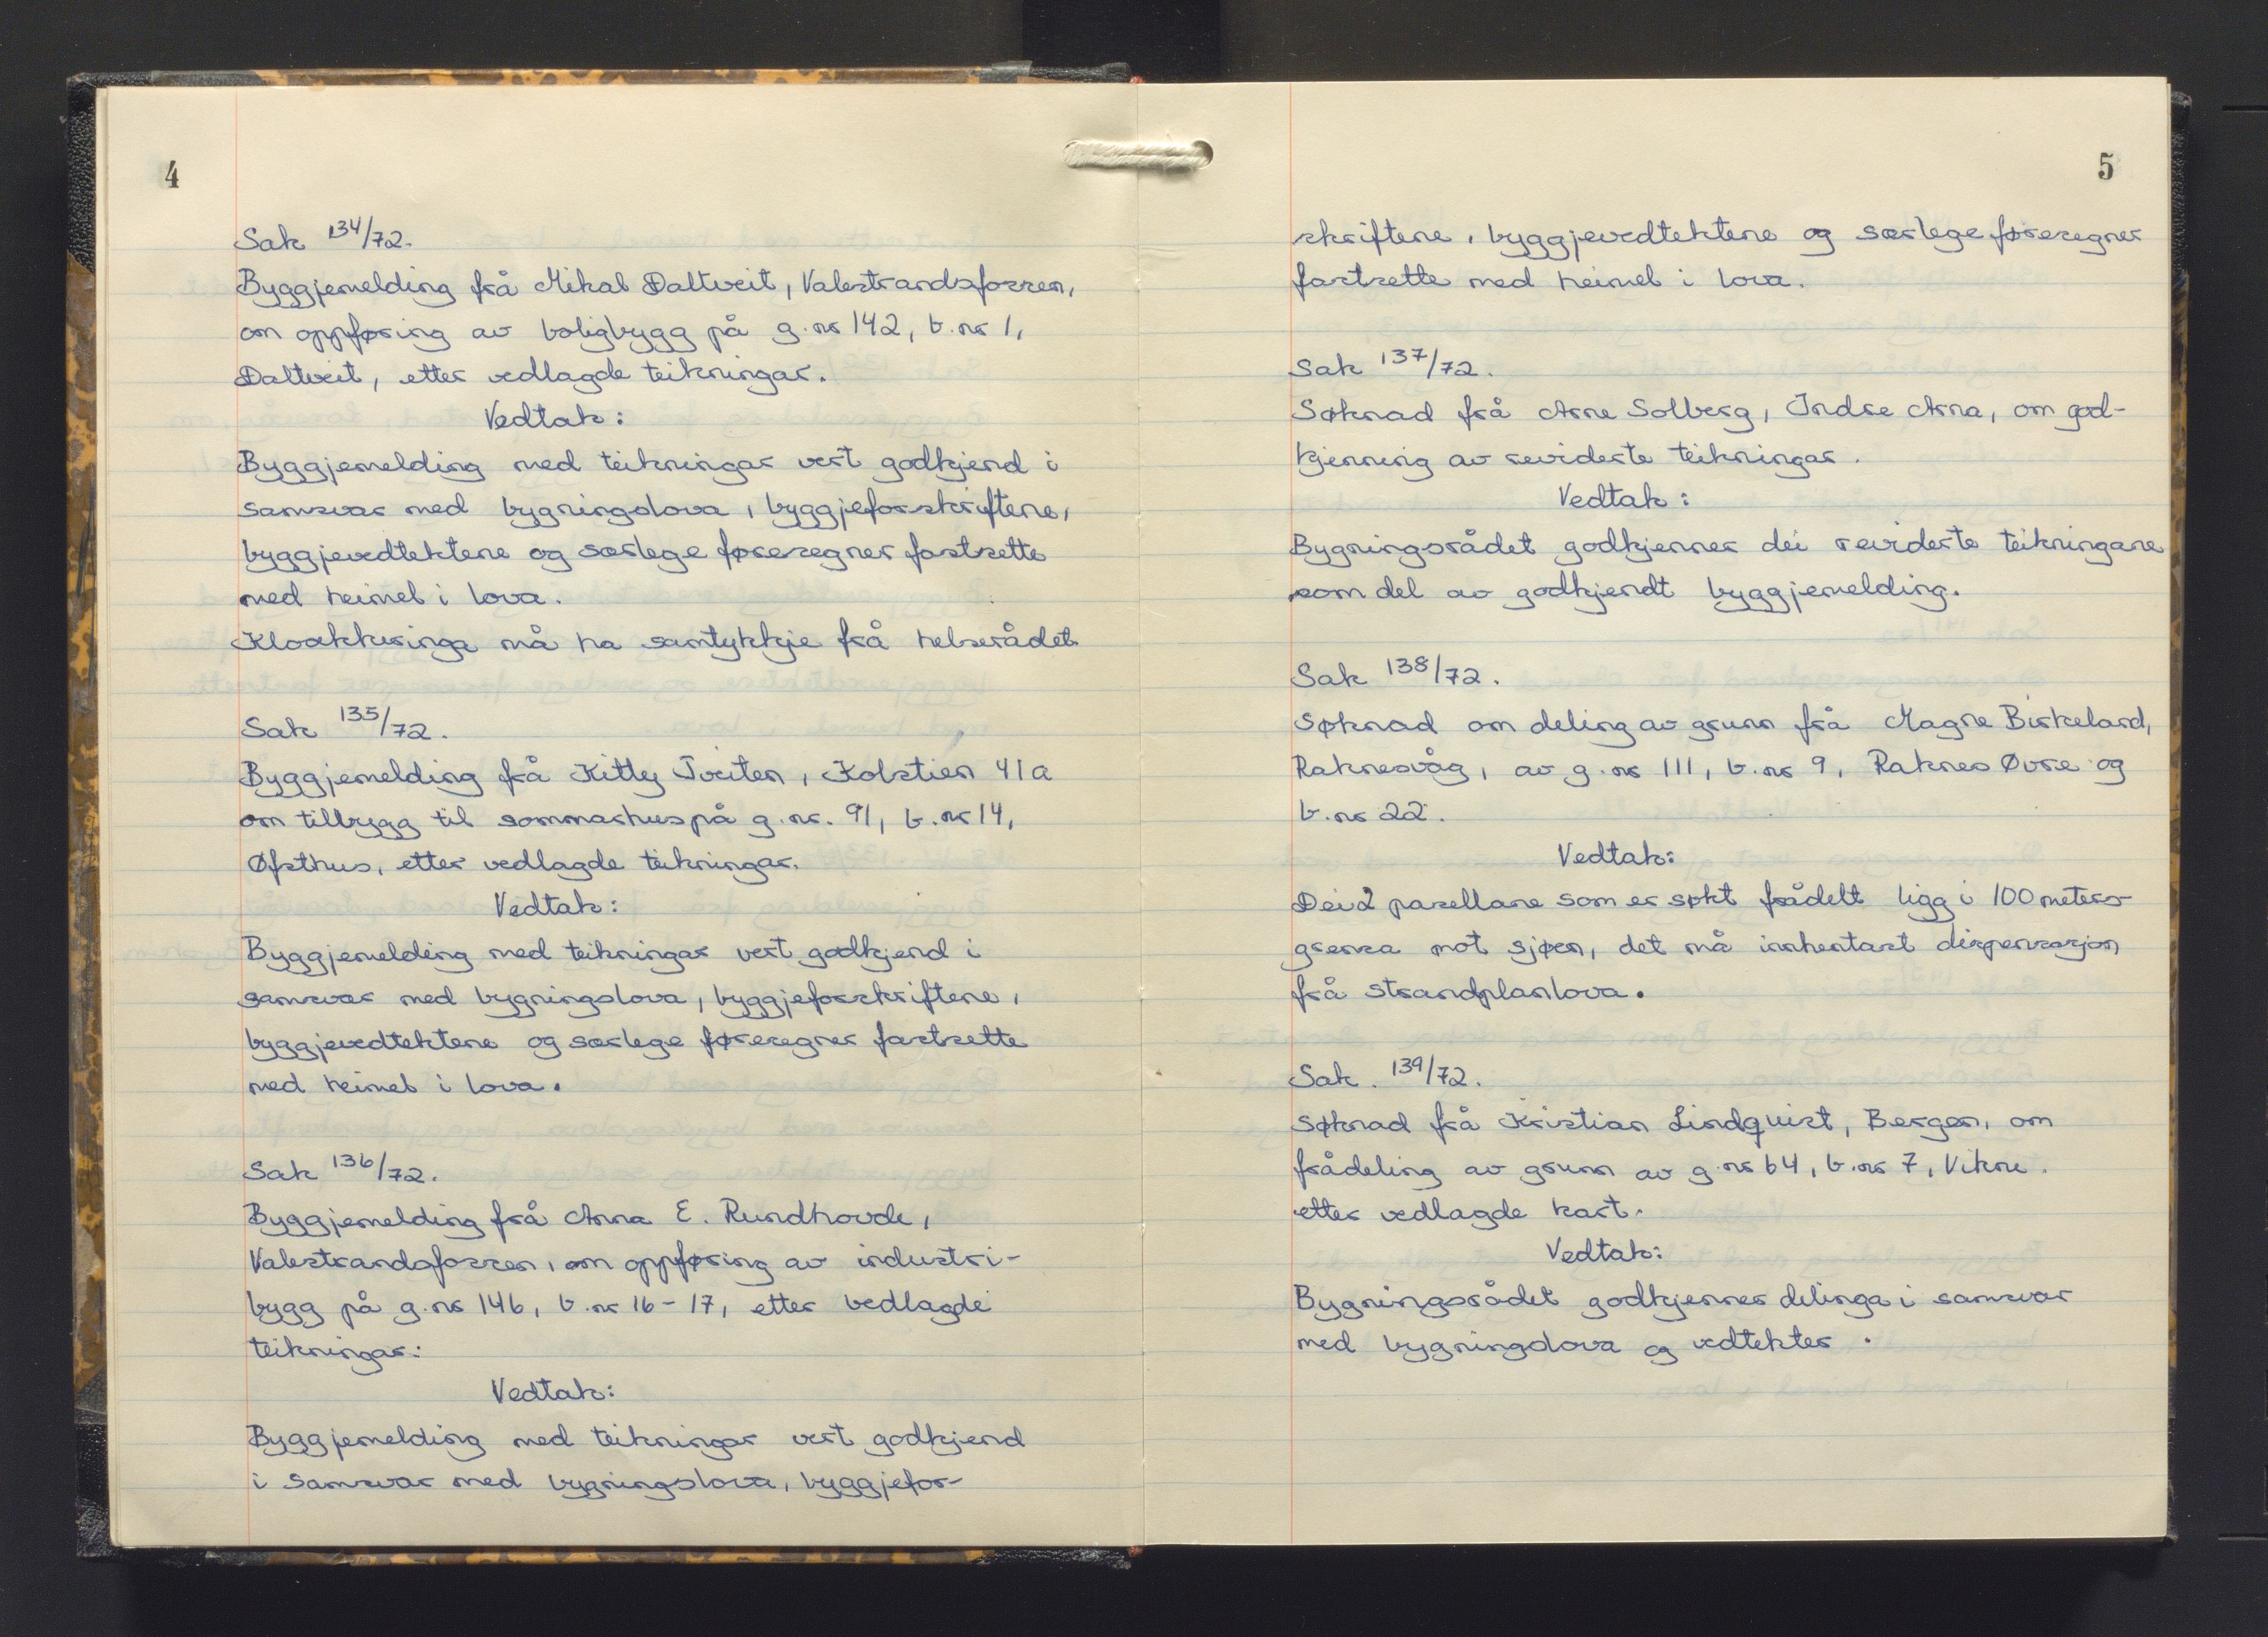 4
Sak 134/72.
Byggjemelding frå Mikal Daltveit, Valestrandsfossen,
om oppføring av boligbygg på g.nr 142, b.nr 1,
Daltveit, etter vedlagde teikningar.
Vedtak:
Byggjemelding med teikningar vert godkjend i
samsvar med bygningslova, byggjeforskriftene,
byggjevedtektene og særlege føresegner fastsette
med heimel i lova.
Kloakkeringa må ha samtykkje frå helserådet
Sak 135/72.
Byggjemelding frå Kitty Tveiten, Kolstien 41a
om tilbygg til sommarhus på g.nr. 91, b.nr 14,
Øfsthus, etter vedlagde teikningar.
Vedtak:
Byggjemelding med teikningar vert godkjend i
samsvar med bygningslova, byggjeforskriftene,
byggjevedtektene og særlege føresegner fastsette
med heimel i lova.
Sak 136/72.
Byggjemelding frå Anna E. Rundhovde,
Valestrandsfossen, om oppføring av industri-
bygg på g.nr 146, b.nr 16-17, etter vedlagde
teikningar.
Vedtak:
Byggjemelding med teikningar vert godkjend
i samsvar med bygningslova, byggjefor-
5
skriftene, byggjevedtektene og særlege føresegner
fastsette med heimel i lova.
Sak 137/72.
Søknad frå Arne Solberg, Indre Arna, om god-
kjenning av reviderte teikningar.
Vedtak:
Bygningsrådet godkjenner dei reviderte teikningane
som del av godkjendt byggjemelding.
Sak 138/72.
Søknad om deling av grunn frå Magne Birkeland,
Raknesvåg, av g.nr 111, b.nr 9, Raknes Øvre og
b.nr 22.
Vedtak:
Dei 2 parsellane som er søkt frådelt ligg i 100 meters-
grensa mot sjøen, det må innhentast dispensasjon
frå strandplanlova.
Sak. 139/72.
Søknad frå Kristian Lindquist, Bergen, om
frådeling av grunn av g.nr 64, b.nr 7, Vikne.
etter vedlagde kart.
Vedtak:
Bygningsrådet godkjenner delinga i samsvar
med bygningslova og vedtekter.